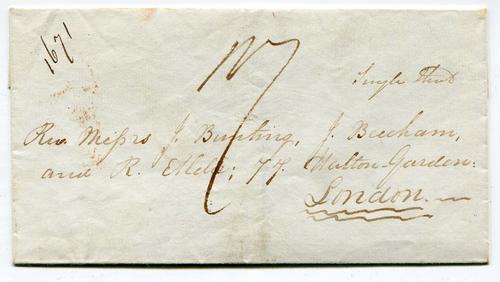 1671
1/7
Single Sheet
Rev. Messrs J. Bunting, J. Beecham,
and R. Alder; 77. Hatton Garden:
London.